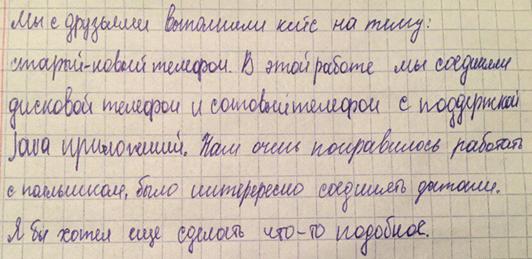 Мы с друзьями выполнили кейс на тему:
старый-новый телефон. В этой работе мы соединили
дисковой телефон и сотовый телефон с поддержкой
Java приложений. Нам очень понравилось работать
с паяльником, было интерересно соединять детали.
Я бы хотел еще сделать что-то подобное.